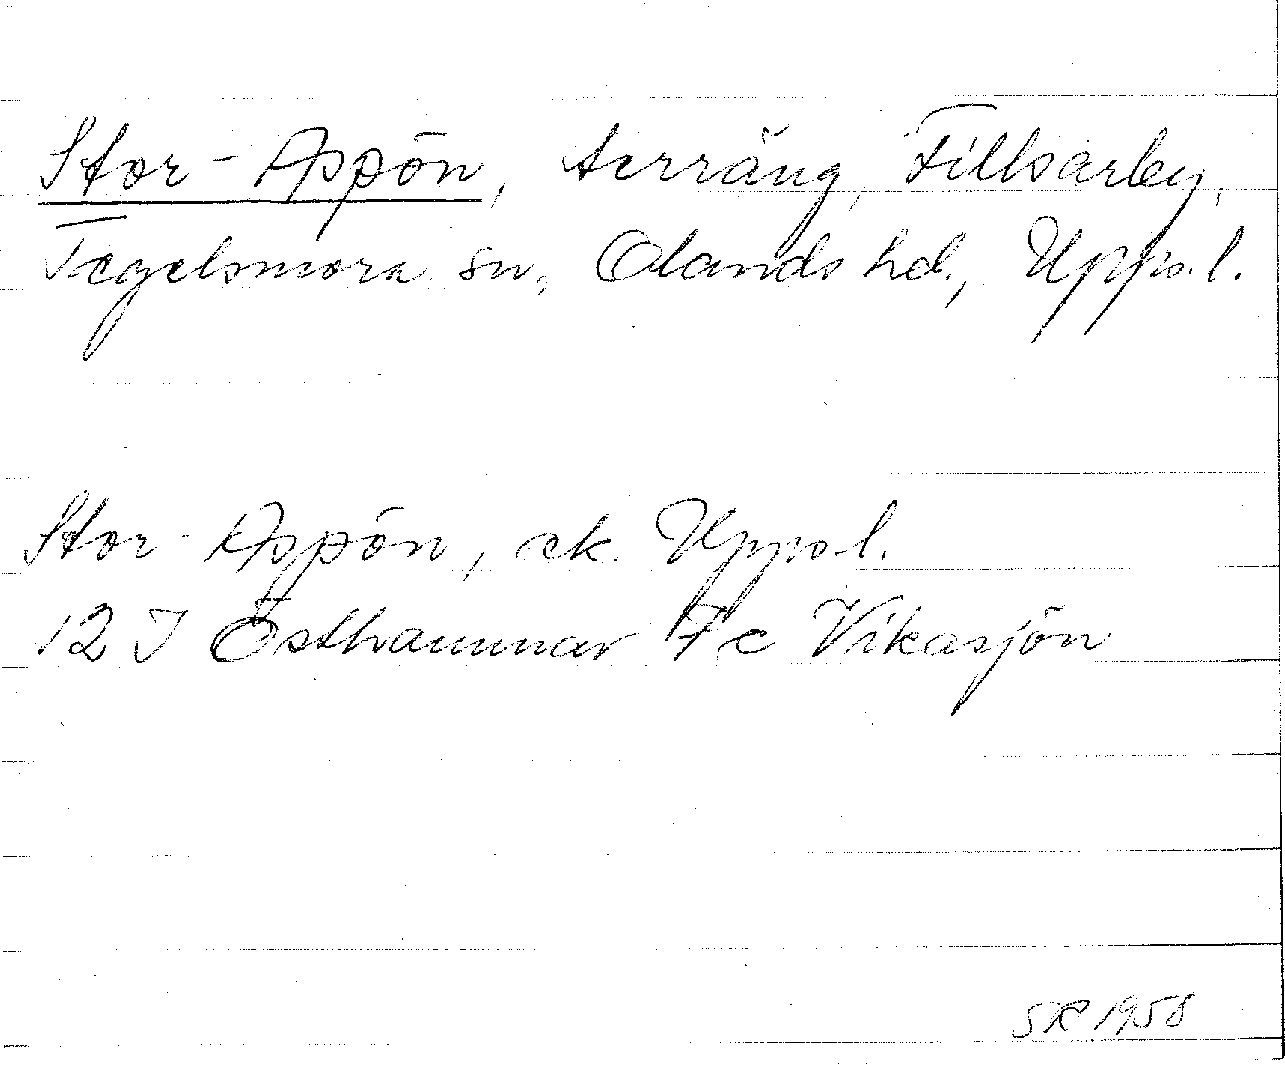 Stor-Aspön, terräng, Fillsarby,
Tegelsmora sn, Olands hd., Upps. l.
Stor-Aspön, ek. Upps l.
12 I Östhammar 7 c Vikasjön
SR 1958